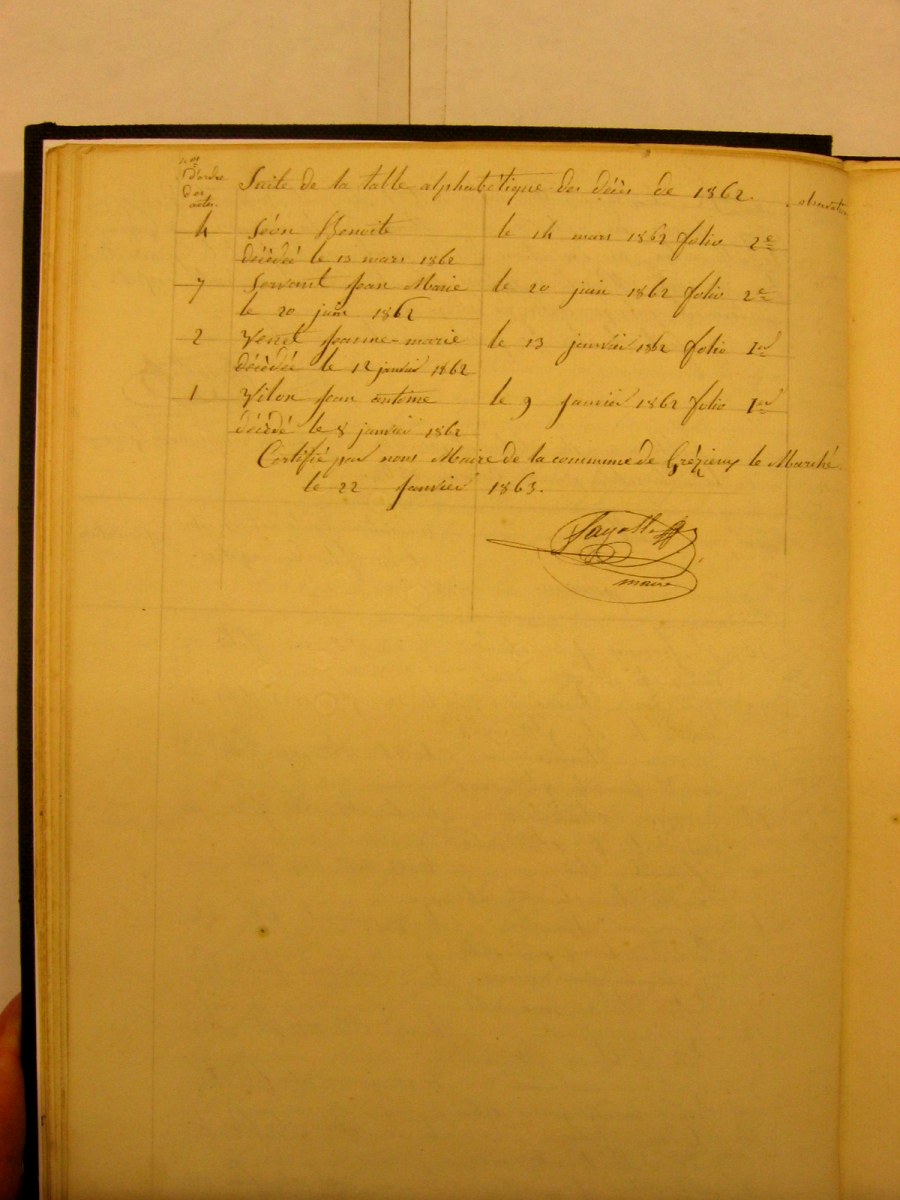 Nos
D'ordre
Des
actes.
Suite de la table alphabétique des décès de 1862.
observations
4 Séon Benoite le 14 mars 1862 folio 2e
décédée le 13 mars 1862
7 Servant Jean Marie le 20 juin 1862 folio 2e
le 20 juin 1862
2 Venet Jeanne-marie le 13 janvier 1862 folio 1er
décédée le 12 janvier 1862
1 Vilon Jean antoine le 9 Janvier 1862 folio 1er
décédé le 8 janvier 1862
Certifié par nous Maire de la commune de Grézieux le Marché
le 22 Janvier 1863.
maire